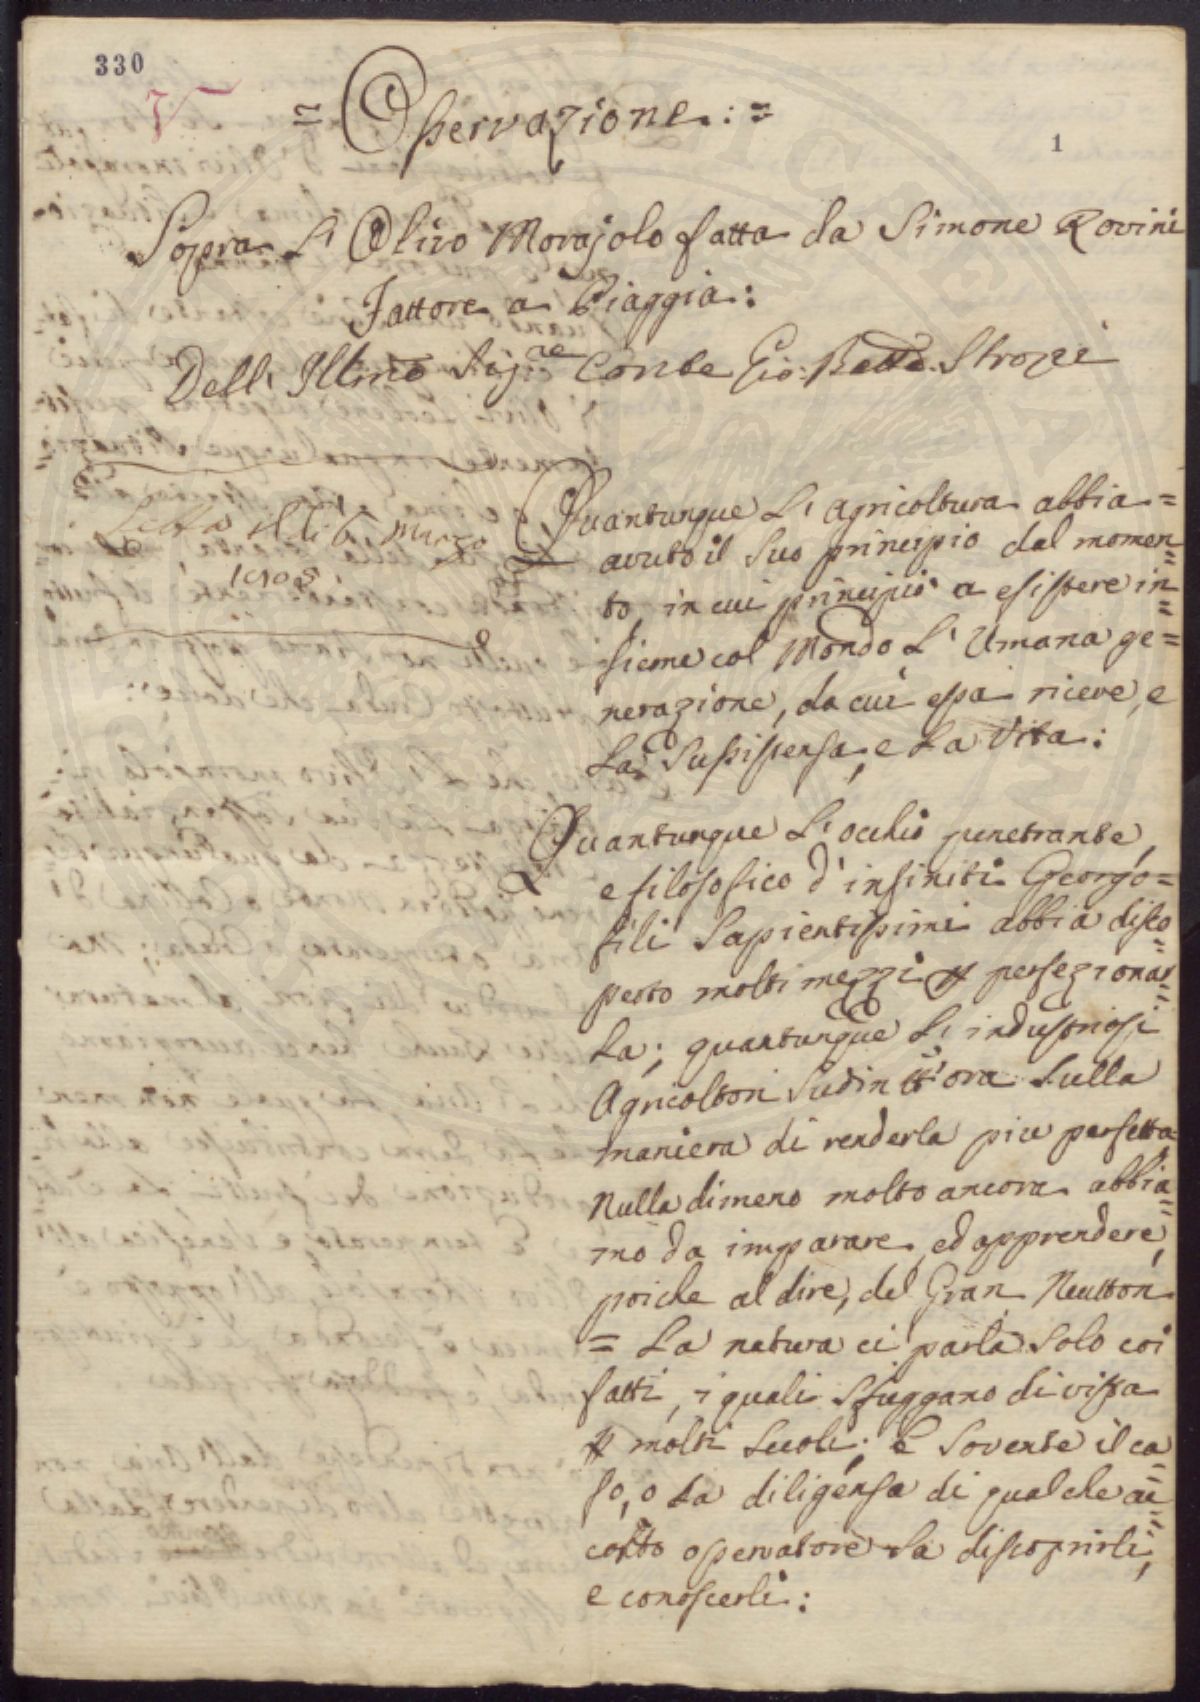 330
1
= Osservazione: =
Sopra L' Olivo Morajolo fatta da Simone Rovini
Fattore a Piaggia:
Dell' Illmo Sig.re Conte Gio: Batta. Strozi
Letta il dì 6 Marzo
Quantunque L' agricoltura abbia=
avuto il suo principio dal momen=
to, in cui principiò a esistere in=
sieme col Mondo L' Umana ge=
nerazione, da cui essa riceve, e
La Sussistensa, e La Vita:
Quantunque L' occhio penetrante,
e filosofico d' infiniti Georgo=
fili Sapientissimi abbia disco=
perto molti mezzi p perfezionar=
La; quantunque L' industriosi
Agricoltori Sudin tt'ora Sulla
maniera di renderla piu perfetta
Nulladimeno molto ancora abbia=
mo da imparare, ed apprendere,
poiche al dire, del Gran Neutton
= La natura ci parla Solo coi
fatti, i quali Sfuggano di vista
p molti Secoli; E Sovente il ca=
so, o La diligensa di qualche ac=
corto osservatore La discoprirli,
e conoscerli: